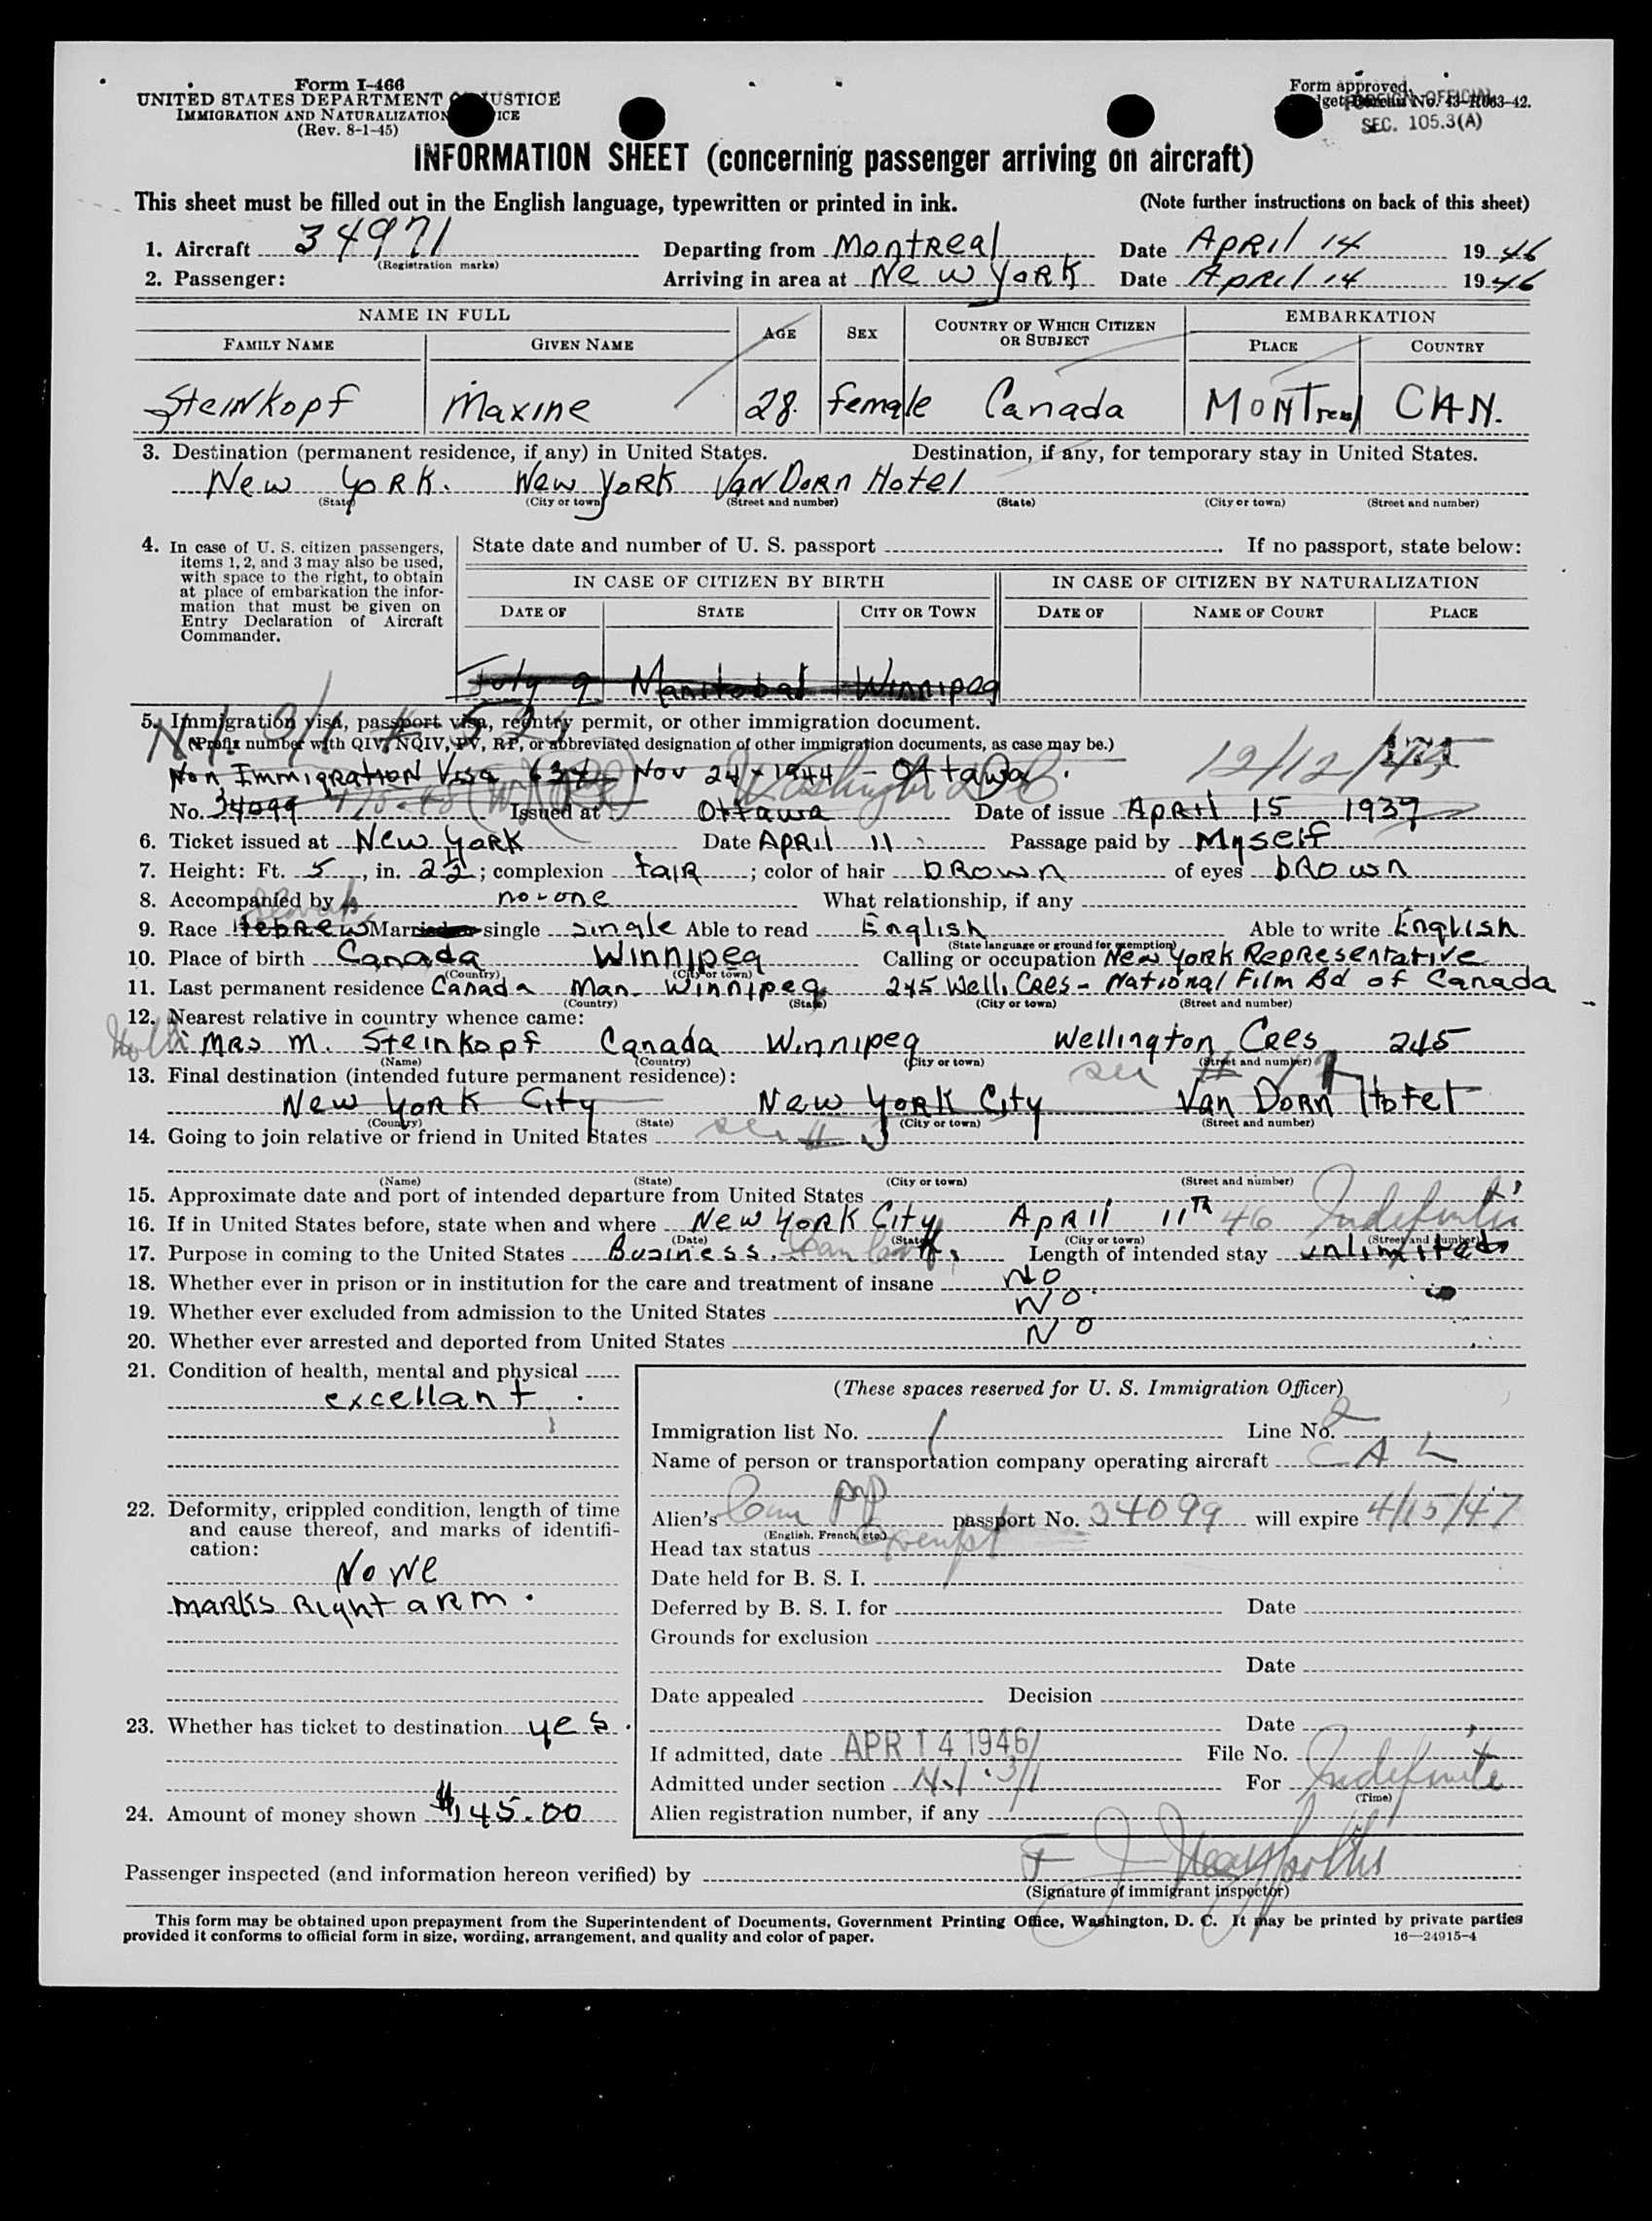 Form I-466
UNITED STATES DEPARTMENT OF JUSTICE
IMMIGRATION AND NATURALIZATION
(Rev. 8-1-45)
Form approved.
Budget Bureau No. 43-R063-42.
FOREIGN OFFICIAL
SEC. 105.3(A)
INFORMATION SHEET (concerning passenger arriving on aircraft)
This sheet must be filled out in the English language, typewritten or printed in ink. (Note further instructions on back of this sheet)
1. Aircraft 34971 Departing from Montreal Date April 14 1946
(Registration marks)
2. Passenger: Arriving in area at New York Date April 14 1946
NAME IN FULL AGE SEX COUNTRY OF WHICH CITIZEN OR SUBJECT EMBARKATION
FAMILY NAME GIVEN NAME PLACE COUNTRY
Steinkopf Maxine 28. female Canada Montreal CAN.
3. Destination (permanent residence, if any) in United States. Destination, if any, for temporary stay in United States.
New York. New York Van Dorn Hotel
(State) (City or town) (Street and number) (State) (City or town) (Street and number)
4. In case of U. S. citizen passengers, items 1, 2, and 3 may also be used, with space to the right, to obtain at place of embarkation the information that must be given on Entry Declaration of Aircraft Commander.
State date and number of U. S. passport If no passport, state below:
IN CASE OF CITIZEN BY BIRTH IN CASE OF CITIZEN BY NATURALIZATION
DATE OF STATE CITY OR TOWN DATE OF NAME OF COURT PLACE
July 9 Manitoba Winnipeg
5. Immigration visa, passport visa, reentry permit, or other immigration document.
(Prefix number with QIV, NQIV, PV, RP, or abbreviated designation of other immigration documents, as case may be.)
12/12/45
Non Immigration Visa 634 Nov 24 - 1944 - Ottawa.
Washington DC
No. 34099 Issued at Ottawa Date of issue April 15 1937
6. Ticket issued at New York Date April 11 Passage paid by Myself
7. Height: Ft. 5, in. 2½; complexion fair; color of hair brown of eyes brown
8. Accompanied by no-one What relationship, if any
9. Race Hebrew Married or single single Able to read English Able to write English
(State language or ground for exemption)
10. Place of birth Canada Winnipeg Calling or occupation New York Representative
(Country) (City or town)
11. Last permanent residence Canada Man. Winnipeg 245 Well. Cres - National Film Bd of Canada
(Country) (State) (City or town) (Street and number)
12. Nearest relative in country whence came:
Mrs M. Steinkopf Canada Winnipeg Wellington Cres 245
(Name) (Country) (City or town) (Street and number)
13. Final destination (intended future permanent residence):
New York City New York City Van Dorn Hotel
(Country) (State) (City or town) (Street and number)
14. Going to join relative or friend in United States see # 3
(Name) (State) (City or town) (Street and number)
15. Approximate date and port of intended departure from United States
16. If in United States before, state when and where New York City April 11th 46 Indefinite
(Date) (State) (City or town) (Street and number)
17. Purpose in coming to the United States Business. Length of intended stay unlimited
18. Whether ever in prison or in institution for the care and treatment of insane No.
19. Whether ever excluded from admission to the United States No
20. Whether ever arrested and deported from United States No
21. Condition of health, mental and physical
excellant.
22. Deformity, crippled condition, length of time and cause thereof, and marks of identification:
None
marks Right arm.
23. Whether has ticket to destination yes.
24. Amount of money shown $145.00
(These spaces reserved for U. S. Immigration Officer)
Immigration list No. 1 Line No. 2
Name of person or transportation company operating aircraft C A L
Alien's Can passport No. 34099 will expire 4/15/47
(English, French, etc.)
Head tax status Exempt
Date held for B. S. I.
Deferred by B. S. I. for Date
Grounds for exclusion
Date
Date appealed Decision
Date
If admitted, date APR 14 1946 File No.
Admitted under section N.I. 3/1 For Indefinite
(Time)
Alien registration number, if any
Passenger inspected (and information hereon verified) by
(Signature of immigrant inspector)
This form may be obtained upon prepayment from the Superintendent of Documents, Government Printing Office, Washington, D. C. It may be printed by private parties
provided it conforms to official form in size, wording, arrangement, and quality and color of paper. 16—24915-4